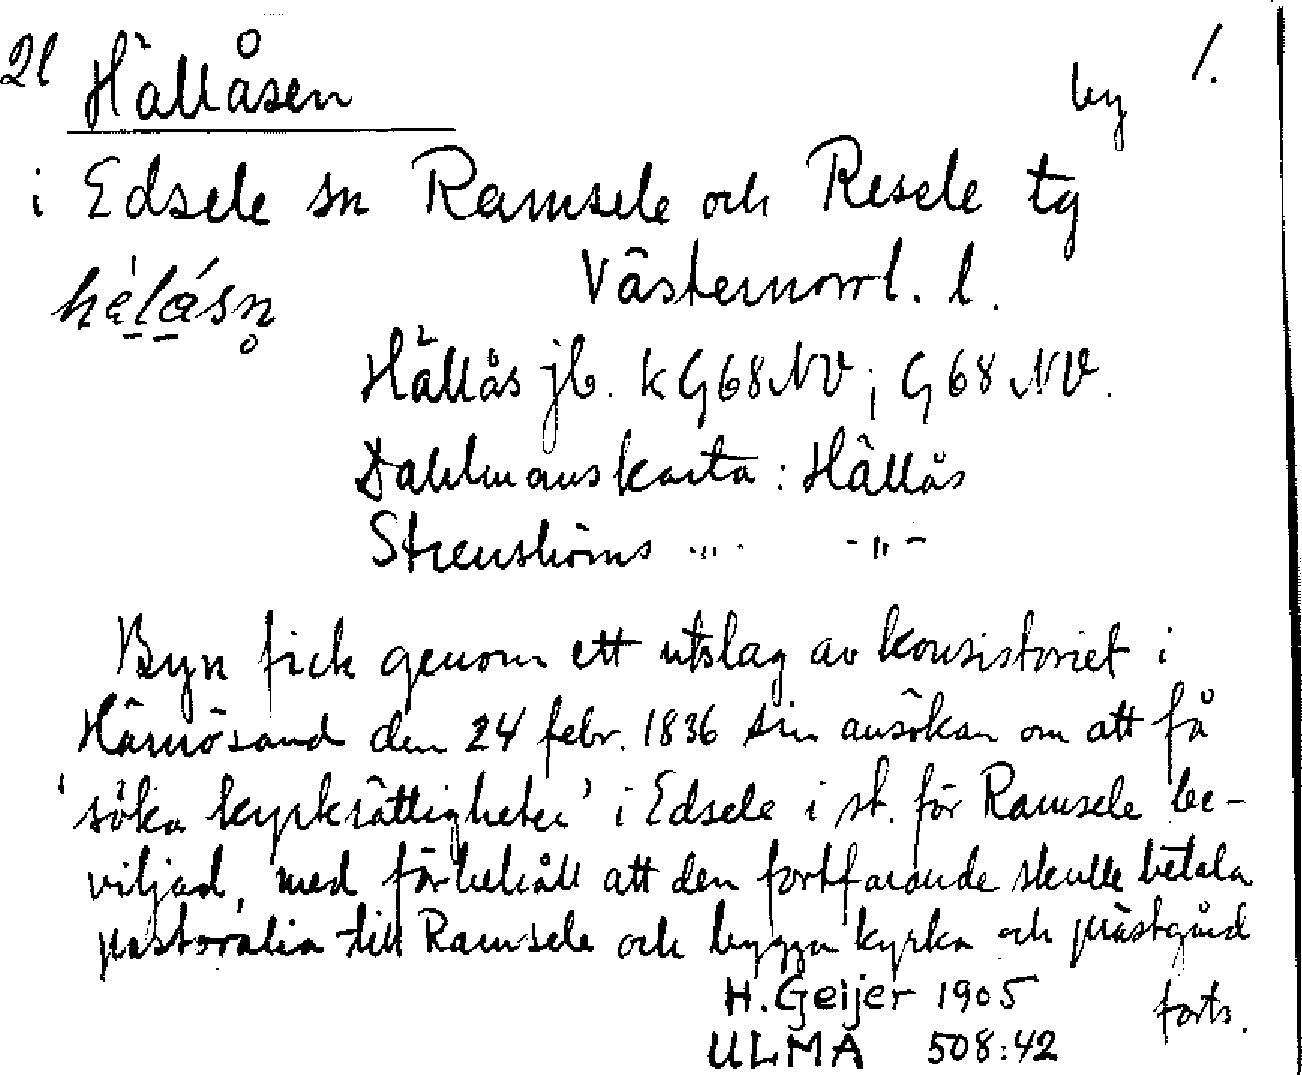 21 Hällåsen by 1.
i Edsele sn Ramsele och Resele tg
Västernorrl. l.
Hällås jb. k G68NV; G68NV.
Dahlmans karta: Hällås
Strenströms -"- -"-
Byn fick genom ett utslag av konsistoriet i
Härnösand den 24 febr. 1836 sin ansökan om att få
'söka kyrkrättigheter' i Edsele i st. för Ramsele be-
viljad, med förbehåll att den fortfarande skulle betala
pastoralia till Ramsele och bygga kyrka och prästgård
forts.
H. Geijer 1905
ULMA 508:42